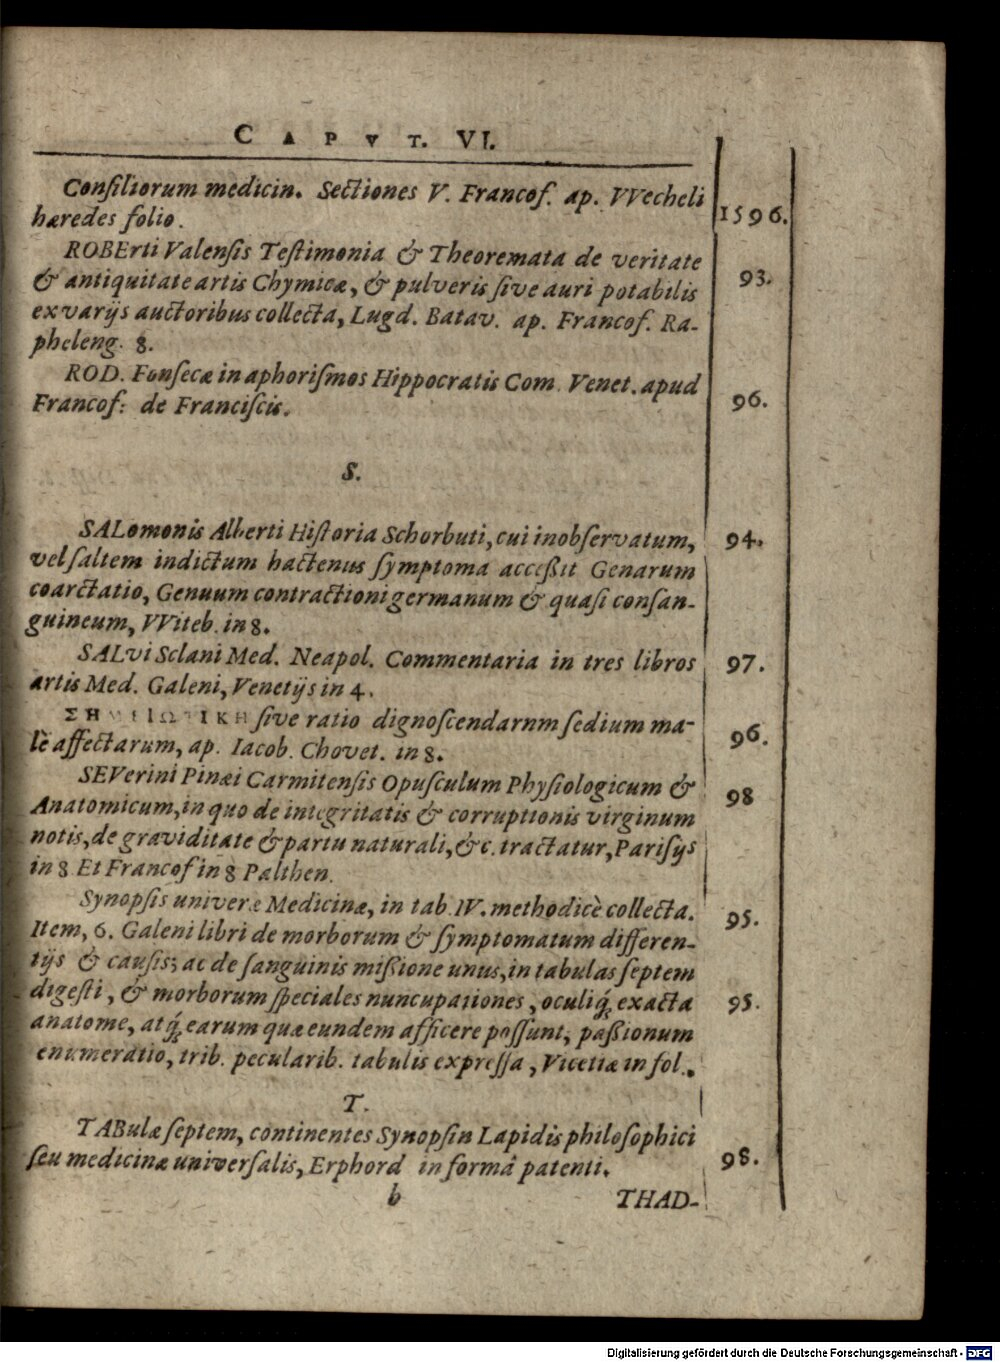 CAPVT. VI.
Consiliorum medicin. Sectiones V. Francof. ap. VVecheli
hæredes folio. 1596.
ROBErti Valensis Testimonia & Theoremata de veritate
& antiquitate artis Chymicæ, & pulveris sive auri potabilis 93.
ex varijs auctoribus collecta, Lugd. Batav. ap. Francof. Ra-
pheleng. 8.
ROD. Fonsecæ in aphorismos Hippocratis Com. Venet. apud
Francof: de Franciscis. 96.
S.
SALomonis Alberti Historia Schorbuti, cui inobservatum, 94.
vel saltem indictum hactenus symptoma accessit Genarum
coarctatio, Genuum contractioni germanum & quasi consan-
guineum, VViteb. in 8.
SALvi Sclani Med. Neapol. Commentaria in tres libros 97.
artis Med. Galeni, Venetijs in 4.
ΣΗΜΕΙΩΤΙΚΗ sive ratio dignoscendarnm sedium ma-
lè affectarum, ap. Iacob. Chovet. in 8. 96.
SEVerini Pinæi Carmitensis Opusculum Physiologicum &
Anatomicum, in quo de integritatis & corruptionis virginum 98
notis, de graviditate & partu naturali, &c. tractatur, Parisijs
in 8 Et Francof in 8 Palthen.
Synopsis univeræ Medicinæ, in tab. IV. methodicè collecta. 95.
Item, 6. Galeni libri de morborum & symptomatum differen-
tijs & causis; ac de sanguinis missione unus, in tabulas septem
digesti, & morborum speciales nuncupationes, oculiq́; exacta 95.
anatome, atq́; earum quæ eundem afficere possunt, passionum
enumeratio, trib. pecularib. tabulis expressa, Vicetiæ in fol.
T.
TABulæ septem, continentes Synopsin Lapidis philosophici
seu medicinæ universalis, Erphord in formâ patenti. 98.
b THAD-
Digitalisierung gefördert durch die Deutsche Forschungsgemeinschaft - DFG